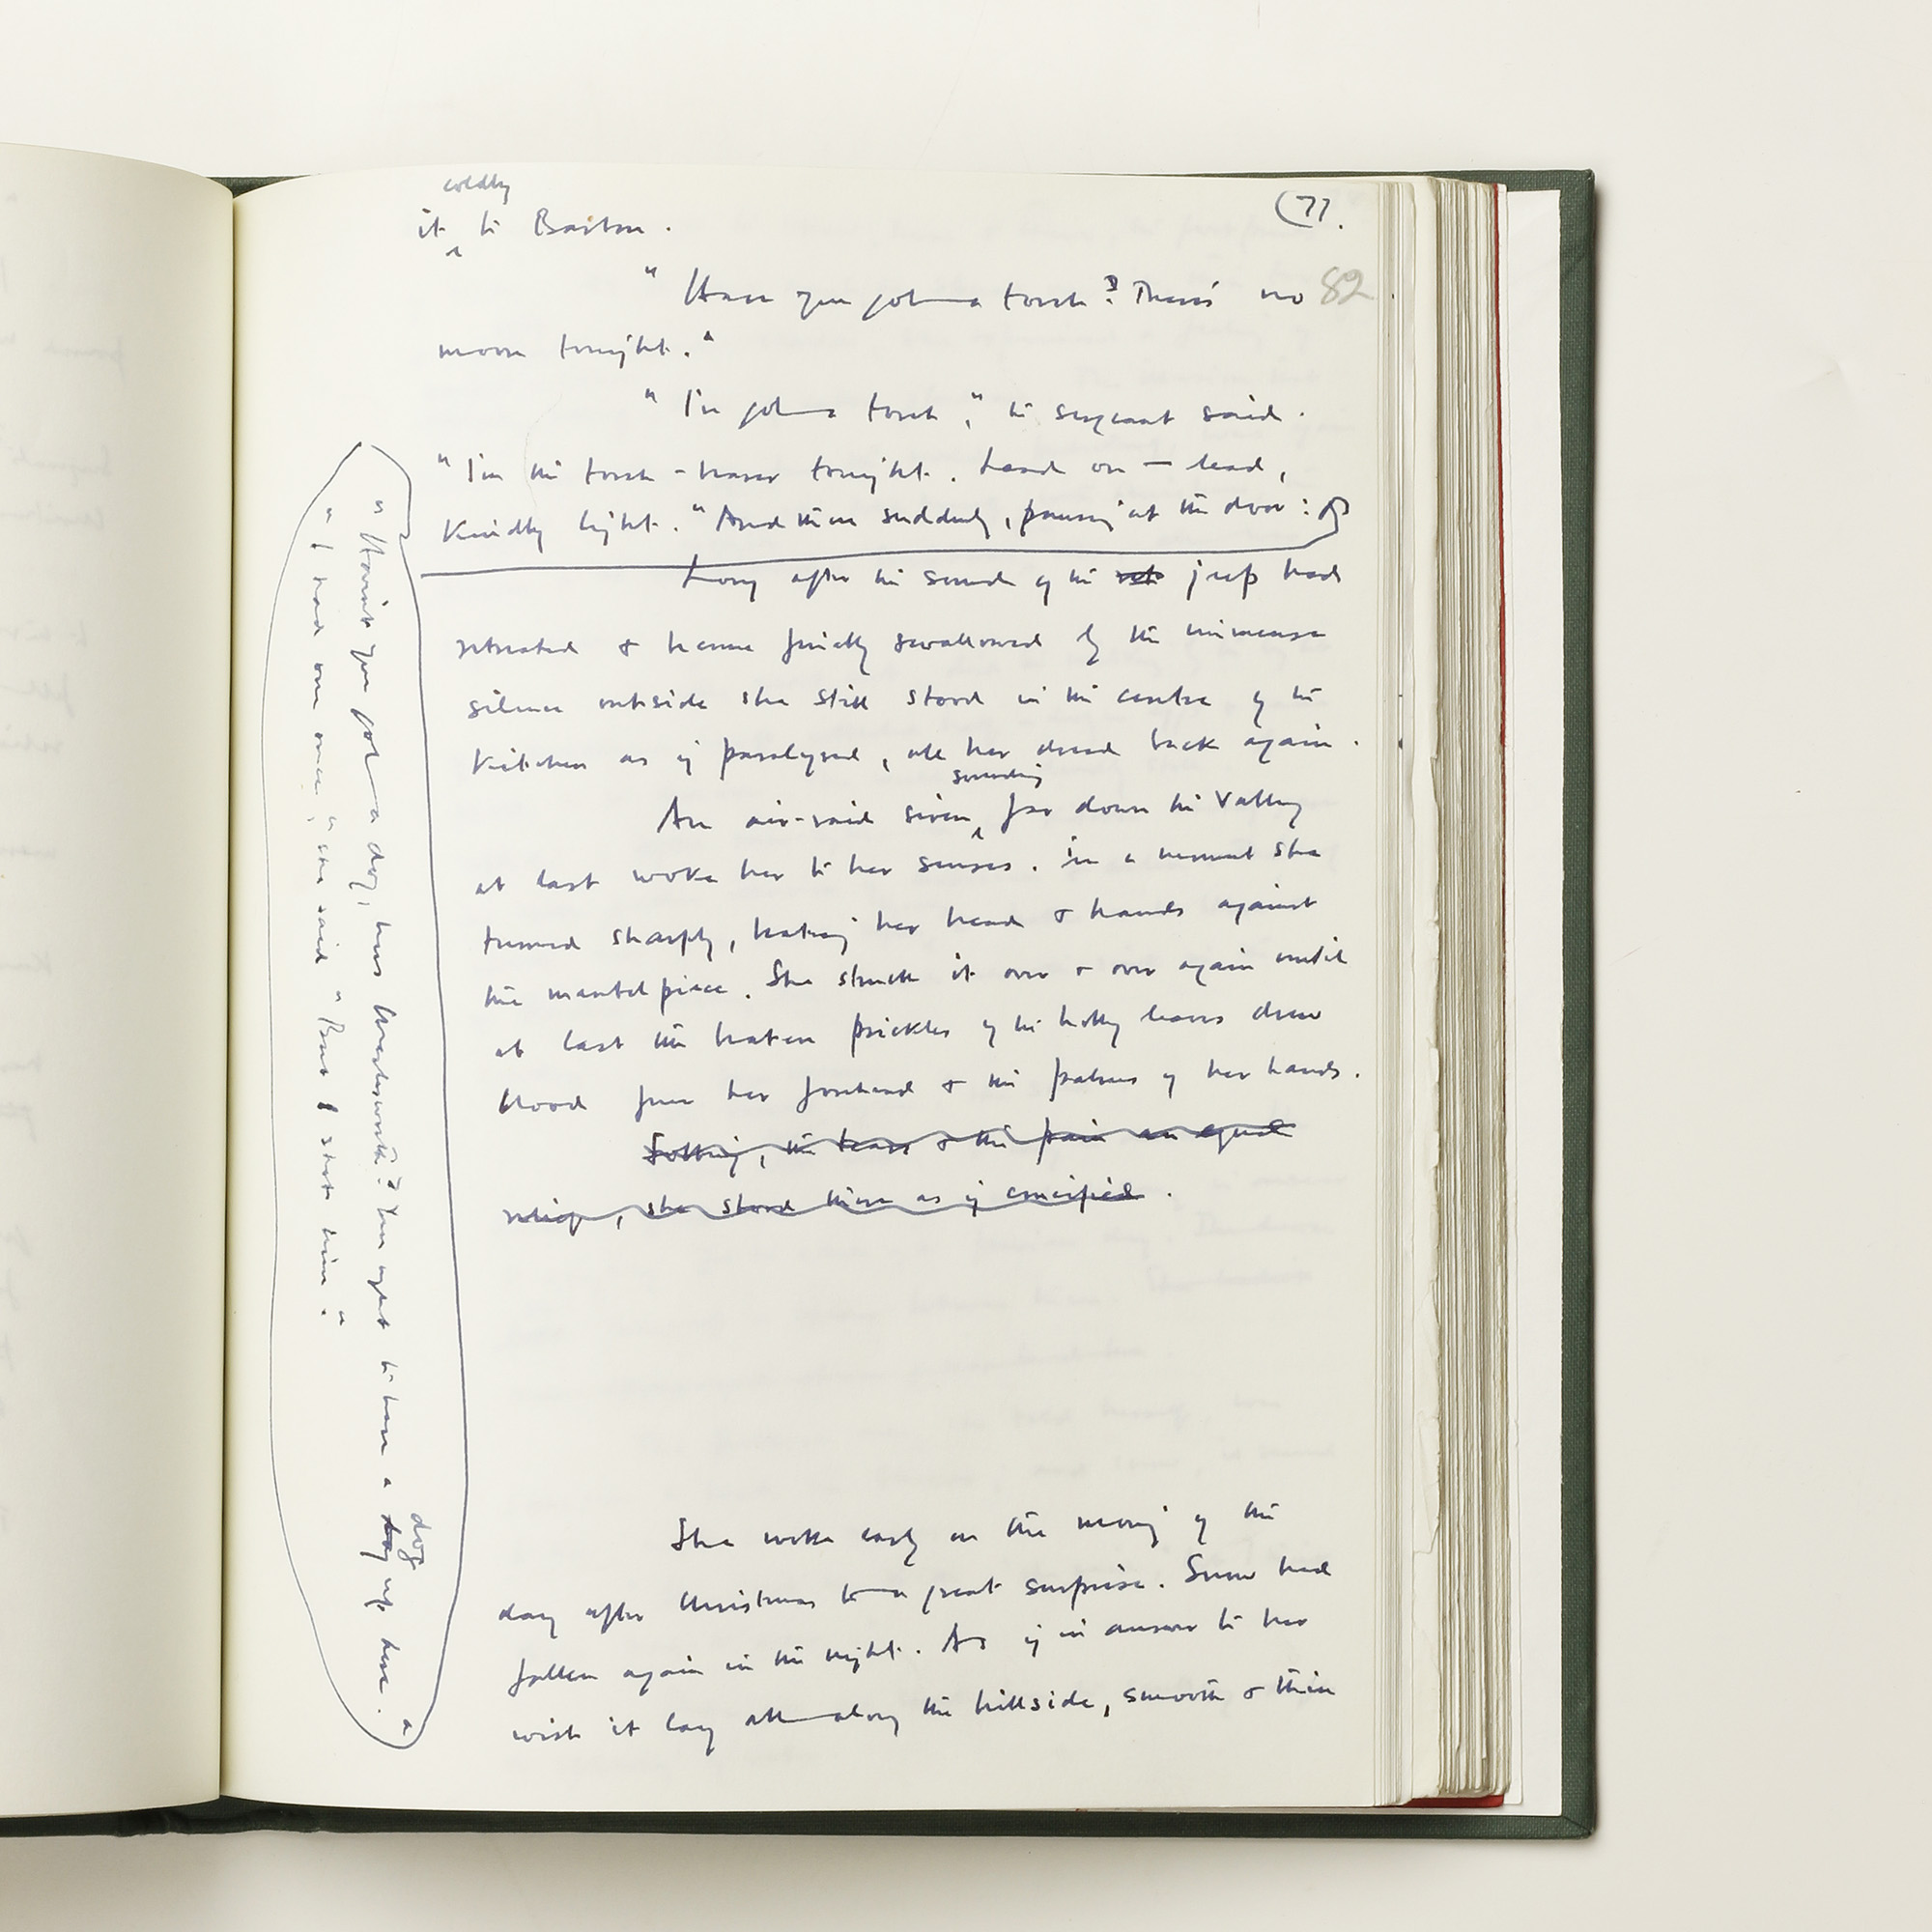 coldly
(77.
it ‸ to Barton.
82
"Have you got a torch? There's no
moon tonight."
"I've got a torch," the sergeant said.
"I'm the torch-bearer tonight. Lead on — lead,
Kindly light." And then suddenly, pausing at the door:
Long after the sound of the jeep had
retreated & become finally swallowed by the immense
silence outside she still stood in the centre of the
kitchen as if paralysed, all her dread back again.
sounding
An air-raid siren ‸ far down the valley
at last woke her to her senses. In a moment she
turned sharply, beating her head & hands against
the mantelpiece. She struck it over & over again until
at last the beaten prickles of the holly leaves drew
blood from her forehead & the palms of her hands.
Sobbing, the tears & the pain an equal
relief, she stood there as if crucified.
She woke early on the morning of the
day after Christmas to a great surprise. Snow had
fallen again in the night. As if in answer to her
wish it lay all along the hillside, smooth & thin
"Haven't you got a dog, Miss? You ought to have a dog up here."
dog
"I had one once," she said "But I shot him."